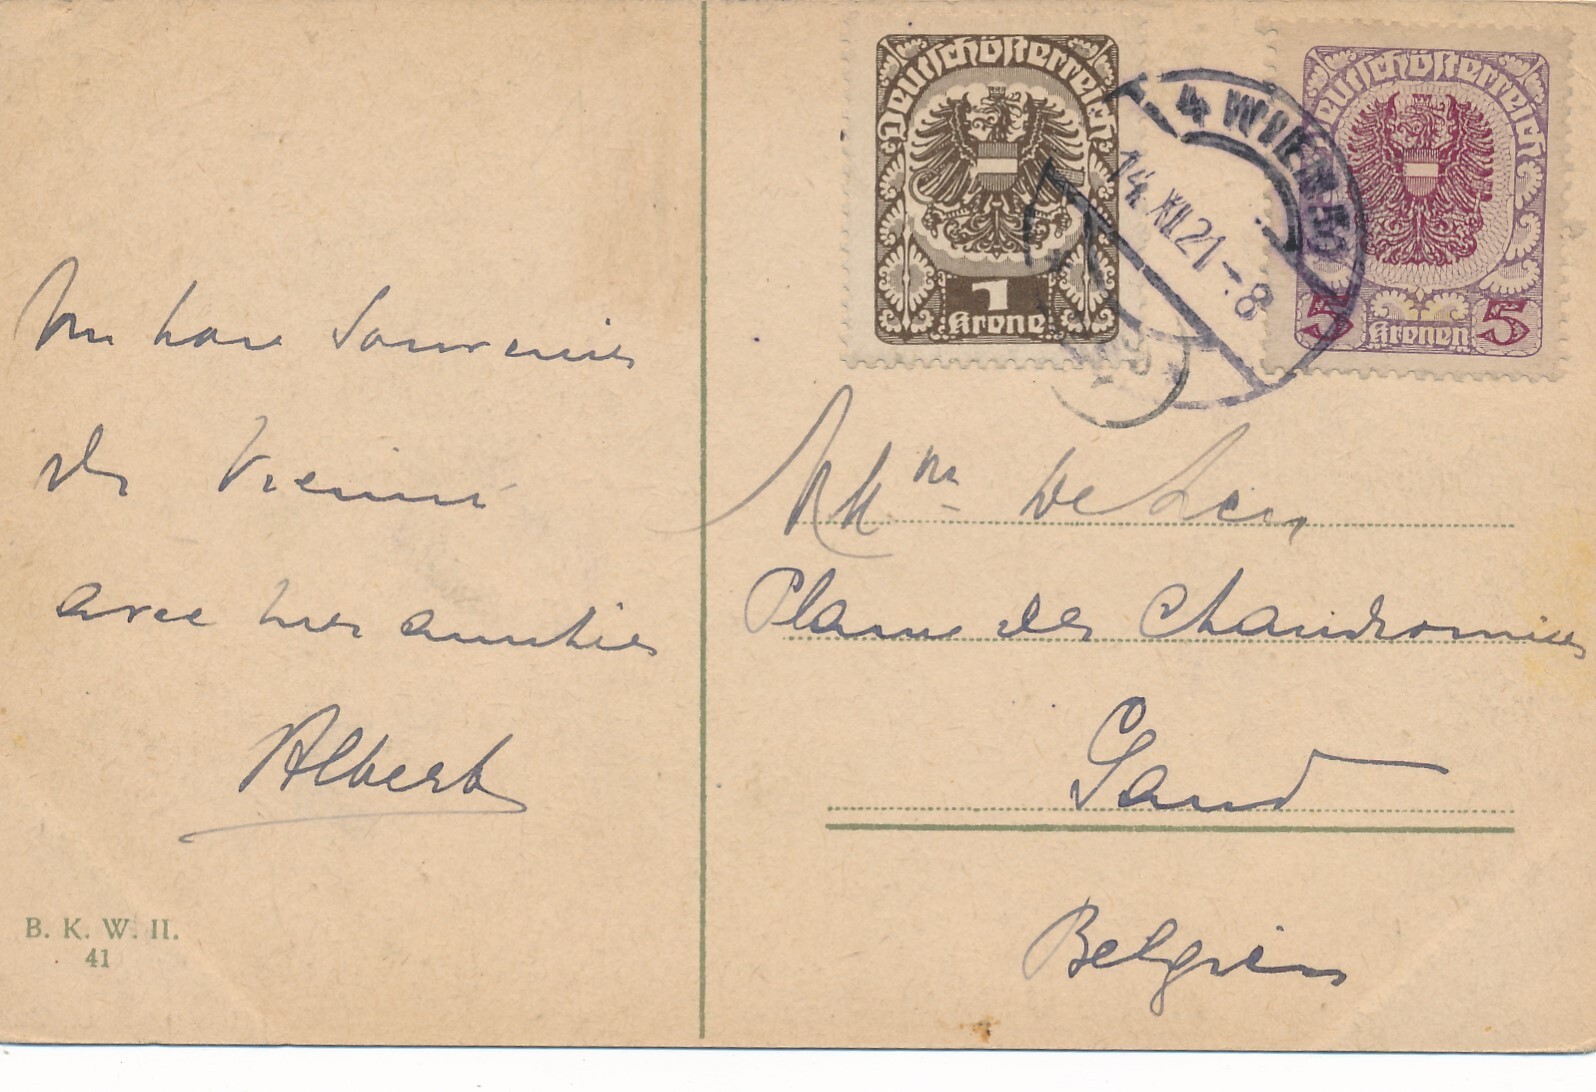 Un bon Souvenir
de Vienne
avec mes amitiés
Albert
B. K. W. II.
41
Deutschösterreich
1
Krone
Deutschösterreich
5 Kronen 5
4 WIEN 50
14.XII.21-8
Mme
Place des Chaudronniers
Gand
Belgien